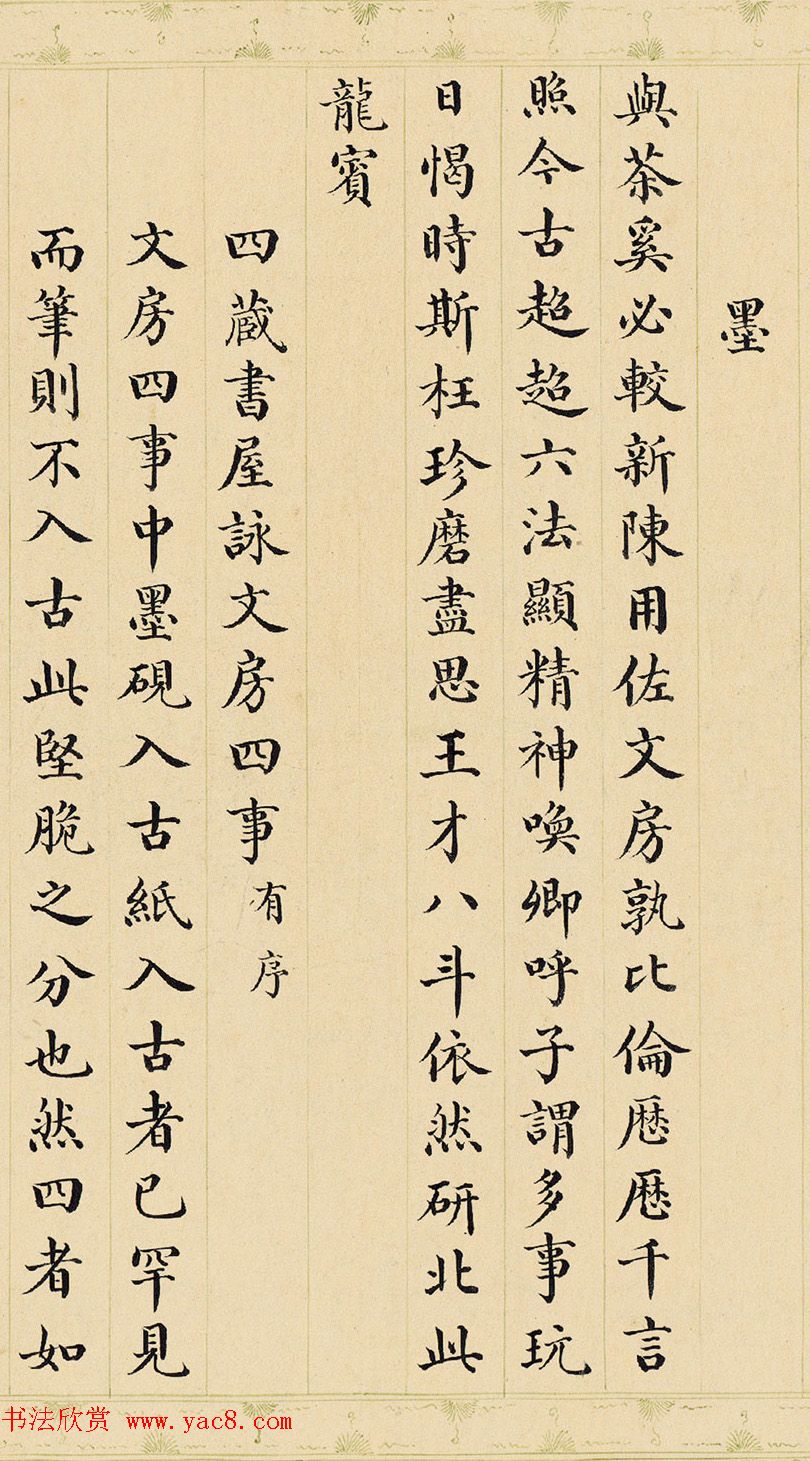 墨
與茶奚必較新陳用佐文房孰比倫歷歷千言
照今古超超六法顯精神喚卿呼子謂多事玩
日愒時斯枉珍磨盡思王才八斗依然研北此
龍賓
四蔵書屋詠文房四事有序
文房四事中墨硯入古紙入古者已罕見
而筆則不入古此堅脆之分也然四者如
书法欣赏 www.yac8.com